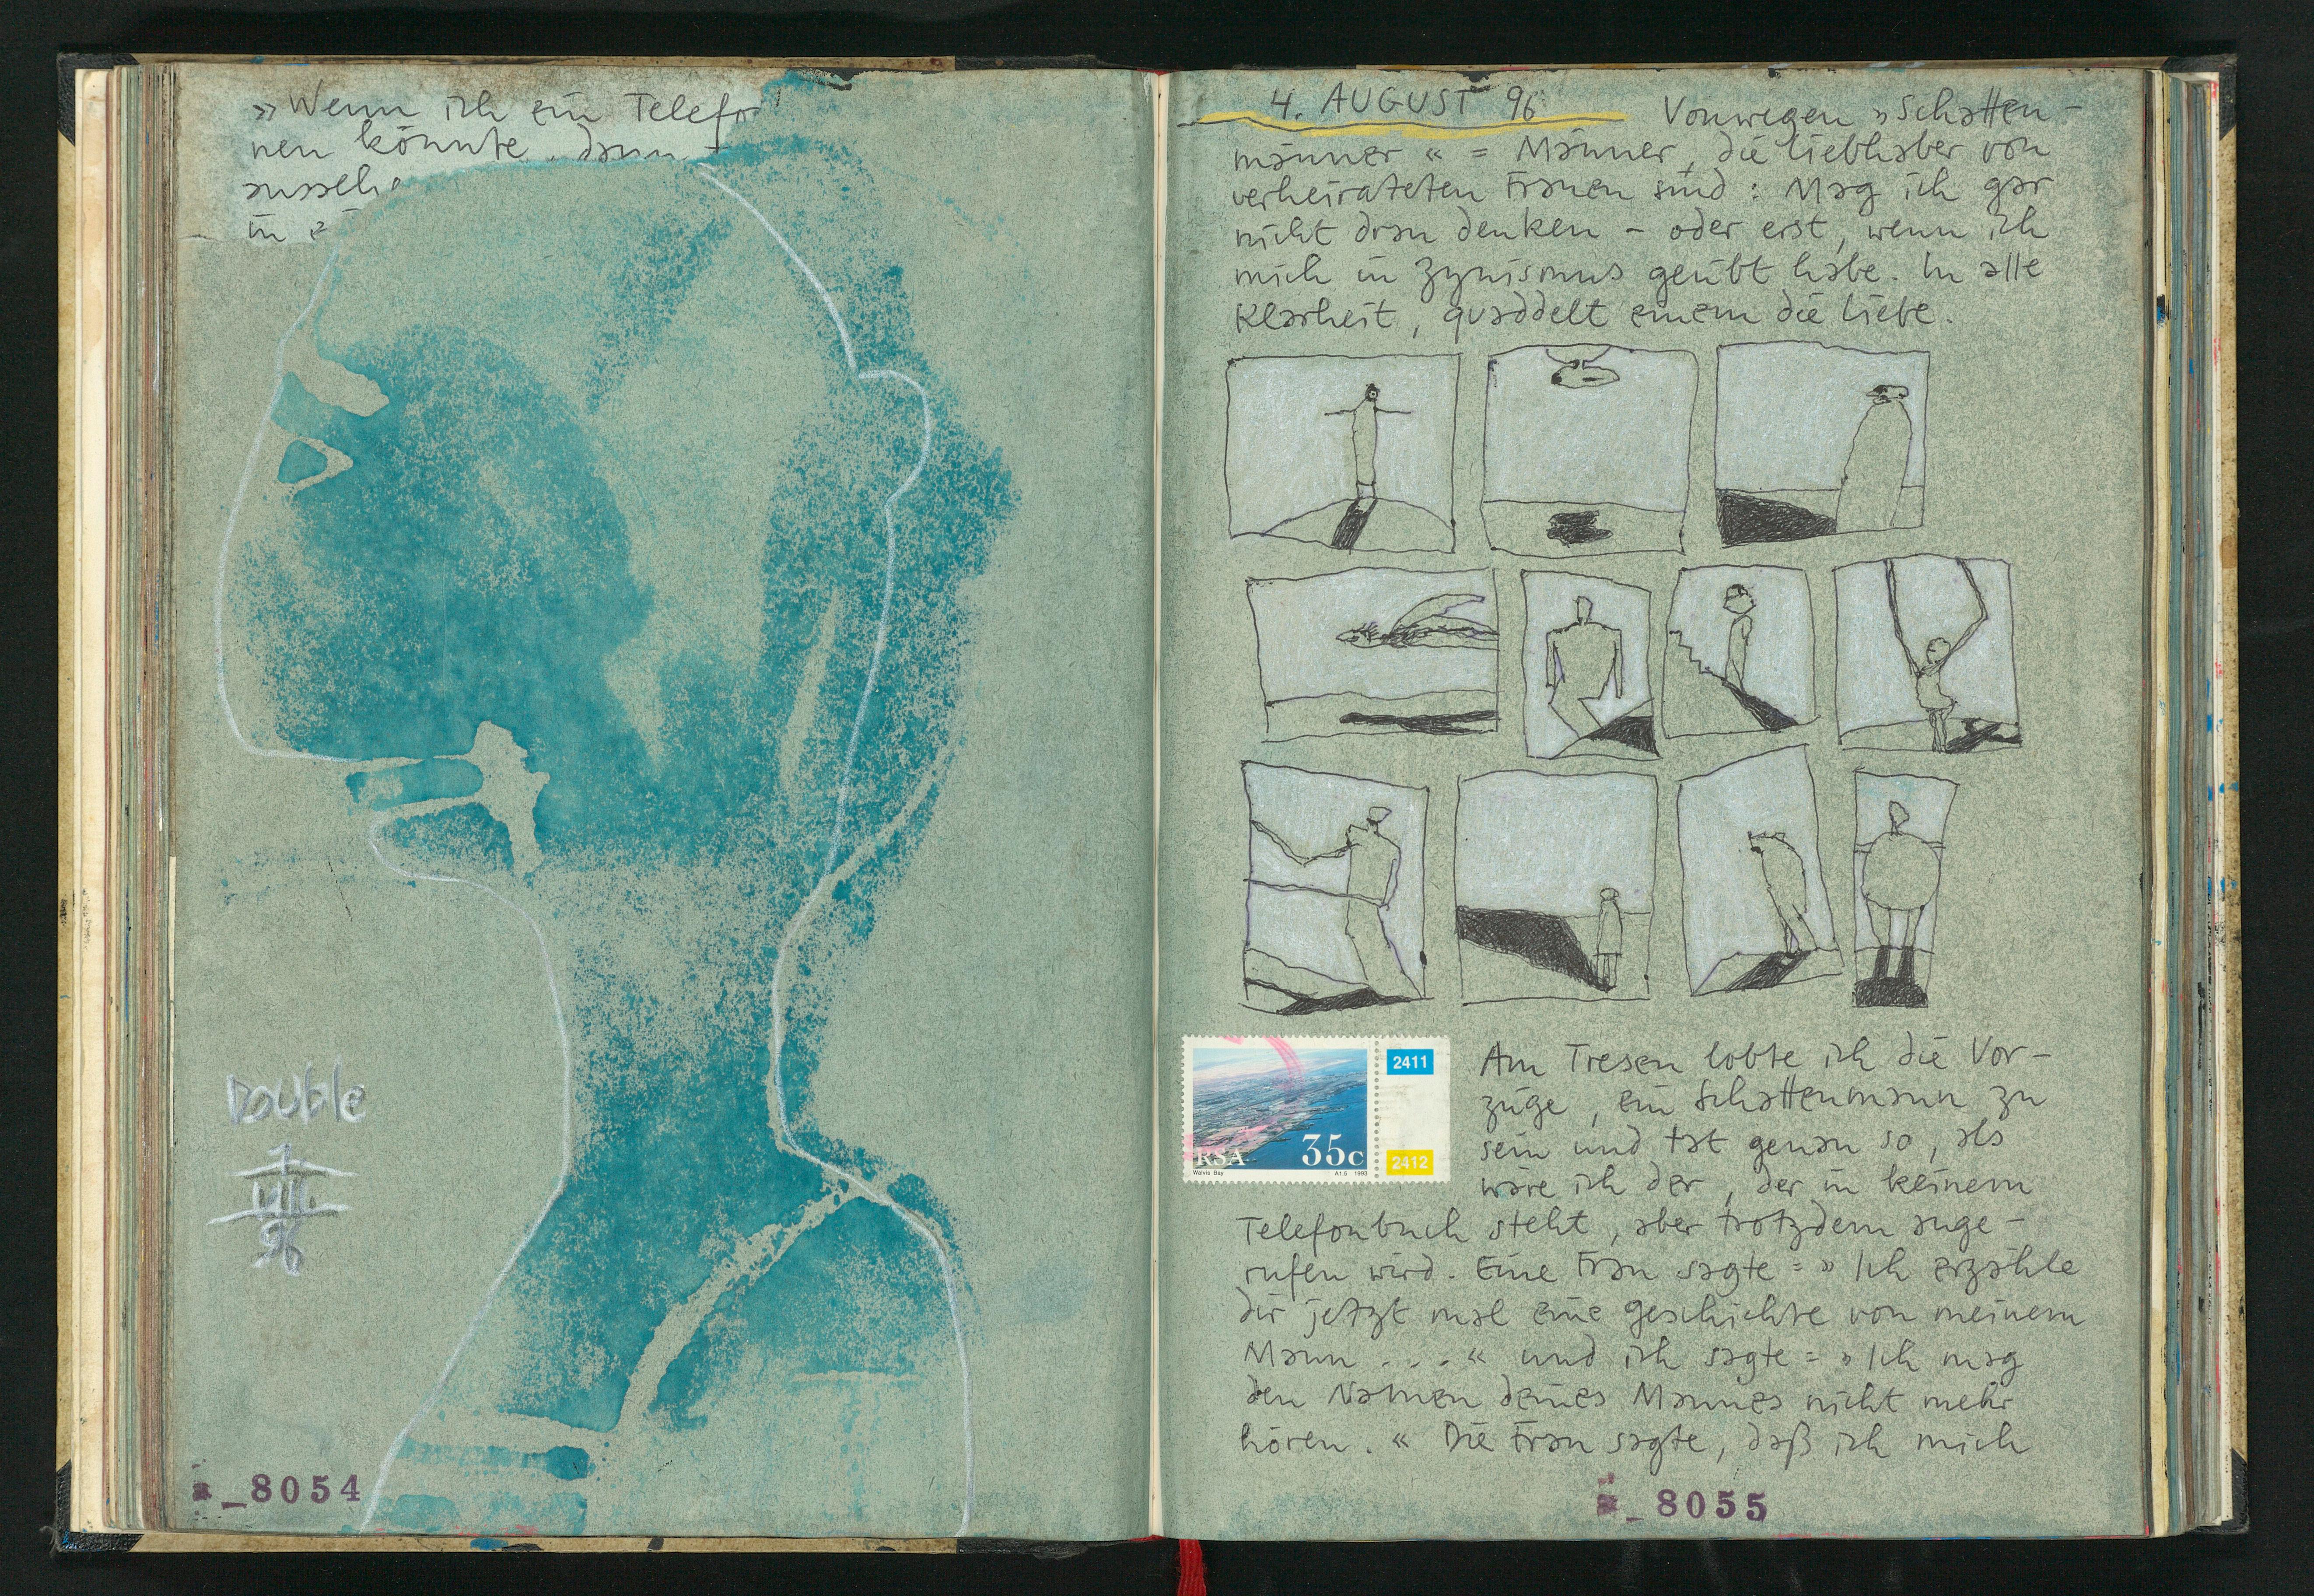 »Wenn ich ein Telefo
nen könnte, dann
aussehe
in e
Double
1
VIII.
96
_8054
4. AUGUST 96 Vonwegen »Schatten-
männer« = Männer, die Liebhaber von
verheirateten Frauen sind: Mag ich gar
nicht dran denken - oder erst, wenn ich
mich in Zynismus geübt habe. In alle
Klarheit, quaddelt einem die Liebe.
2411
2412
RSA 35c
Walvis Bay A1.5 1993
Am Tresen lobte ich die Vor-
züge, ein Schattenmann zu
sein und tat genau so, als
wäre ich der, der in keinem
Telefonbuch steht, aber trotzdem ange-
rufen wird. Eine Frau sagte = »Ich erzähle
dir jetzt mal eine Geschichte von meinem
Mann ....« und ich sagte = »Ich mag
den Namen deines Mannes nicht mehr
hören.« Die Frau sagte, daß ich mich
_8055